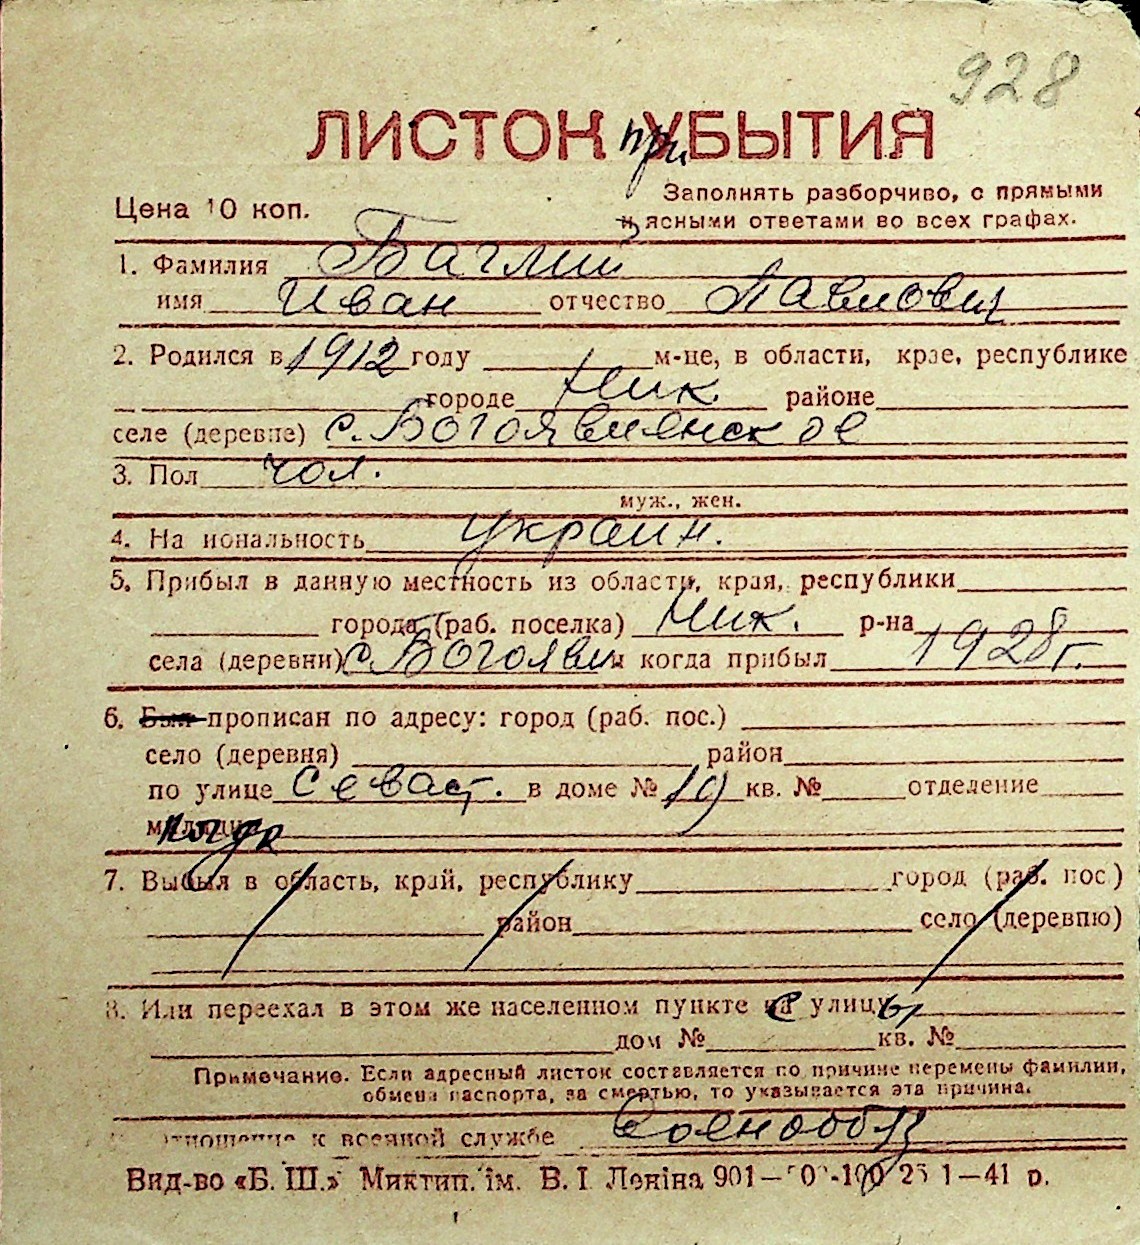 928
ЛИСТОК при УБЫТИЯ
Цена 10 коп.
Заполнять разборчиво, с прямыми
и ясными ответами во всех графах.
1. Фамилия Баглий
имя Иван отчество Павлович
2. Родился в 1912 году м-це, в области, крае, республике
городе Ник. районе
селе (деревне) с. Богоявленское
3. Пол чол.
муж., жен.
4. На иональность украин.
5. Прибыл в данную местность из области, края, республики
города (раб. поселка) Ник. р-на
села (деревни) с. Богоявл и когда прибыл 1928 г.
6. Был прописан по адресу: город (раб. пос.)
село (деревня) район
по улице Севаст. в доме № 19 кв. № отделение
милиции
7. Выбыл в область, край, республику город (раб. пос)
район село (деревню)
8. Или переехал в этом же населенном пункте на с улицу ы
дом № кв. №
Примечание. Если адресный листок составляется по причине перемены фамилии,
обмена паспорта, за смертью, то указывается эта причина.
отношение к военной службе военнообяз
Вид-во «Б. Ш.» Миктип. ім. В. І Леніна 901— 1—41 р.